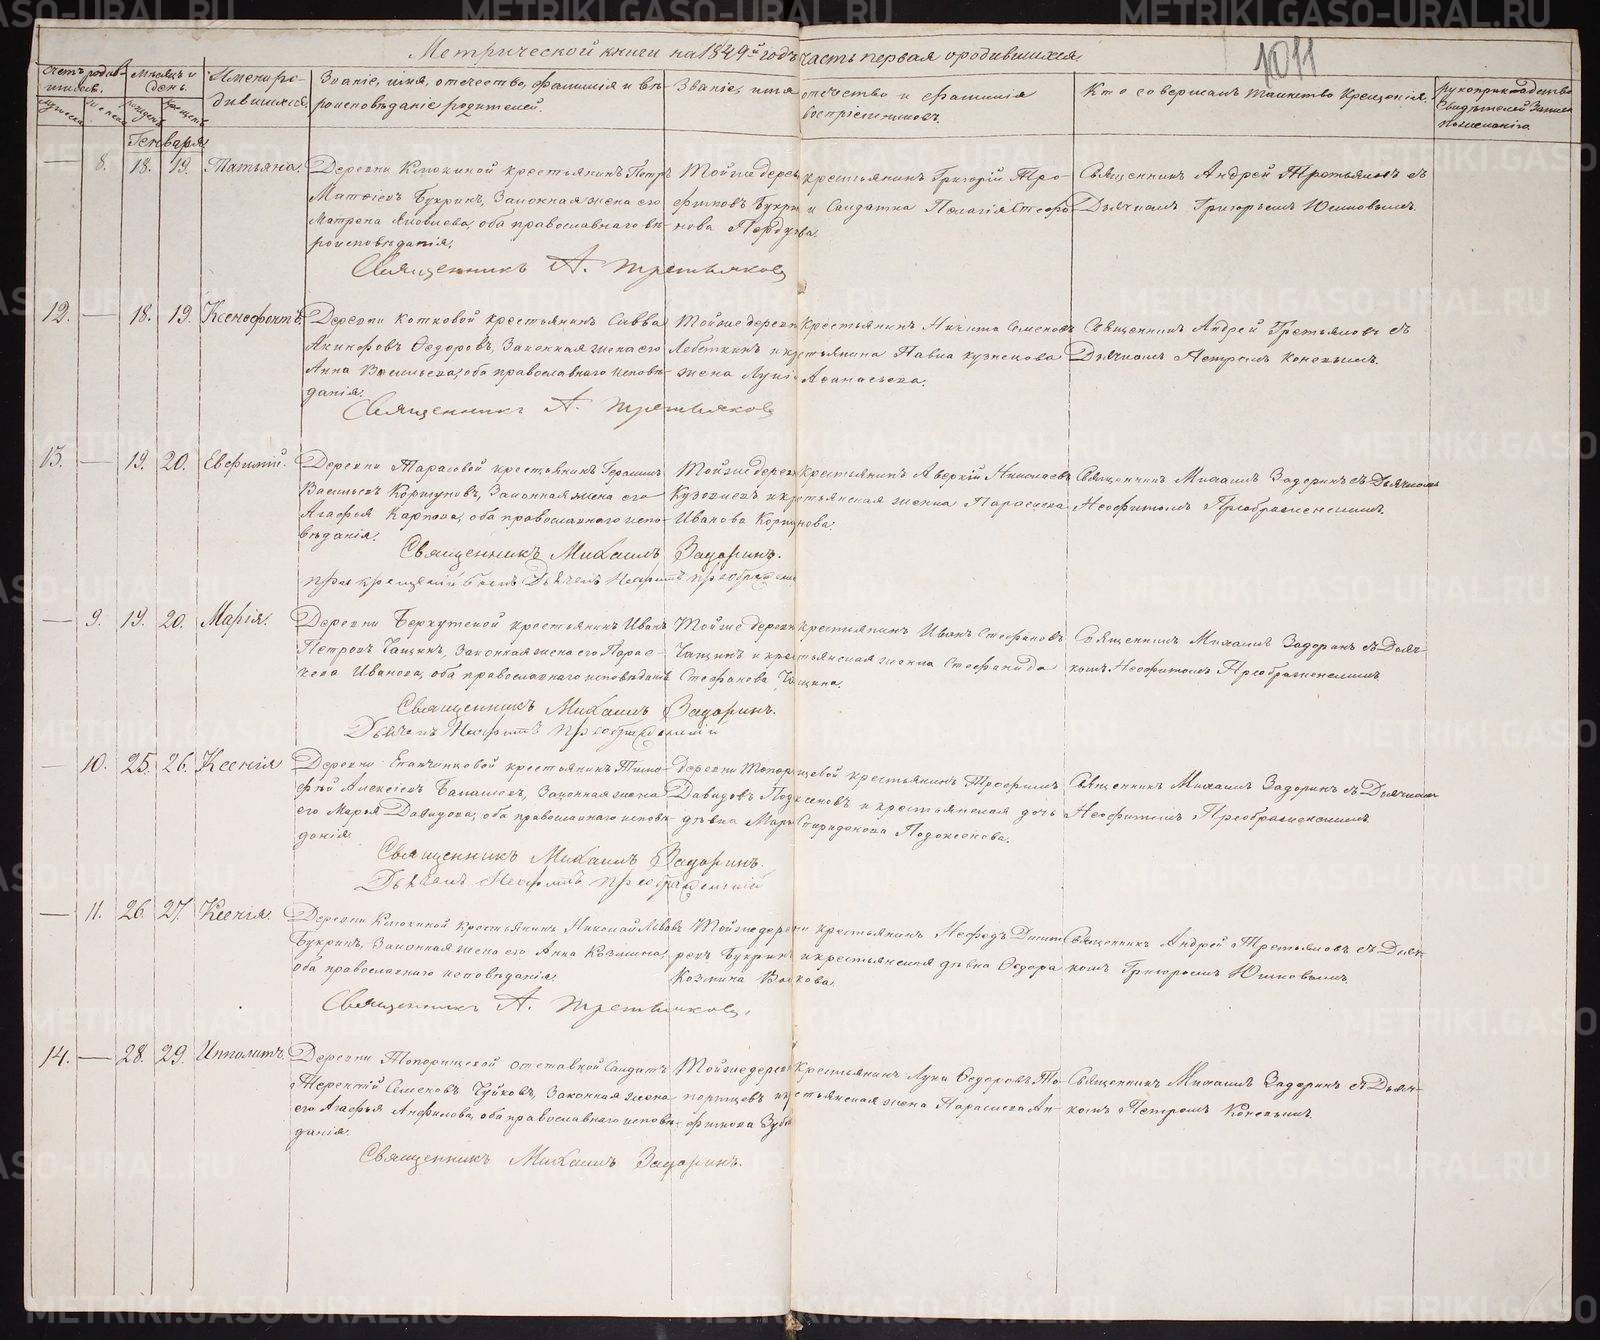 Метрической книги на 1849й годъ часть первая о родившихся
1011
Счетъ родившихся.
Мѣсяцъ и день.
Имена родившихся.
Званіе, имя, отчество, фамилія и вѣроисповѣданіе родителей.
Званіе, имя отчество и фамилія воспріемниковъ.
Кто совершалъ таинство крещенія.
рукоприкладство свидѣтелей записи по желанію.
Генваря
— 8. 18. 19. Татьяна.
Деревни Клюкиной крестьянинъ Петръ
Матвѣевъ Букринъ, Законная жена его
Матрена Яковлева, оба православнаго вѣ-
роисповѣданія.
Тойже деревни крестьянинъ Григорій Тро-
фимовъ Букринъ и Солдатка Пелагія Стефа-
нова
Священникъ Андрей Третьяковъ съ
Дьячкомъ Григорьемъ Юшковымъ.
Священникъ А. Третьяковъ
12. — 18. 19. Ксенофонтъ.
Деревни Котковой крестьянинъ Савва
Акинфовъ Ѳедоровъ, Законная жена его
Анна Васильева, оба православнаго исповѣ-
данія.
Тойже деревни крестьянинъ Никита Семеновъ
Лебеткинъ и крестьянина Павла Кузнецова
жена Аѳанасьева.
Священникъ Андрей Третьяковъ съ
Дьячкомъ Петромъ Коневымъ.
Священникъ А. Третьяковъ
13. — 19. 20. Евфимій.
Деревни Тарасовой крестьянинъ Герасимъ
Васильевъ Коршуновъ, Законная жена его
Агафья Карпова, оба православнаго испо-
вѣданія.
Тойже деревни крестьянинъ Аверкій Николаевъ
и крестьянская женка Параскева
Иванова Коршунова.
Священникъ Михаилъ Задоринъ съ Дьячкомъ
Неофитомъ Преображенскимъ.
Священникъ Михаилъ Задоринъ.
при крещеніи былъ Дьячекъ Неофитъ Преображенскій
— 9. 19. 20. Марія.
Деревни Беркутской крестьянинъ Иванъ
Петровъ Чащинъ, Законная жена его Парас-
кева Иванова, оба православнаго исповѣданія
Тойже деревни крестьянинъ Иванъ Стефановъ
Чащинъ и крестьянская женка Стефанида
Стефанова Чащина.
Священникъ Михаилъ Задоринъ съ Дьяч-
комъ Неофитомъ Преображенскимъ.
Священникъ Михаилъ Задоринъ.
Дьячекъ Неофитъ Преображенскій
— 10. 25. 26. Ксенія
Деревни Епанчинковой крестьянинъ Тимо-
фей Алексѣевъ Балашевъ, Законная жена
его Марья Давидова, оба православнаго исповѣ-
данія
деревни Топорищевой крестьянинъ Трофимъ
Давидовъ и крестьянская дочь
дѣвка Спиридонова Подоксенова.
Священникъ Михаилъ Задоринъ съ Дьячкомъ
Неофитомъ Преображенскимъ.
Священникъ Михаилъ Задоринъ.
Дьячекъ Неофитъ Преображенскій
— 11. 26. 27. Ксенія.
Деревни Клюкиной крестьянинъ Николай Львовъ
Букринъ, Законная жена его Анна Козмина,
оба православнаго исповѣданія.
Тойже деревни крестьянинъ Нефедъ Дмит-
ревъ Букринъ и крестьянская дѣвка Ѳедора
Козмина
Священникъ Андрей Третьяковъ съ Дьяч-
комъ Григоріемъ Юшковымъ.
Священникъ А. Третьяковъ.
14. — 28. 29. Ипполитъ.
Деревни Топорищевой отставной Солдатъ
Терентій Семеновъ Чуйковъ, Законная жена
его Агафья Анфилова, оба православнаго исповѣ-
данія.
Тойже деревни крестьянинъ Лука Ѳедоровъ То-
порищевъ и крестьянская жена Параскева Ан-
Священникъ Михаилъ Задоринъ съ Дьяч-
комъ Петромъ Коневымъ.
Священникъ Михаилъ Задоринъ.
METRIKI.GASO-URAL.RU